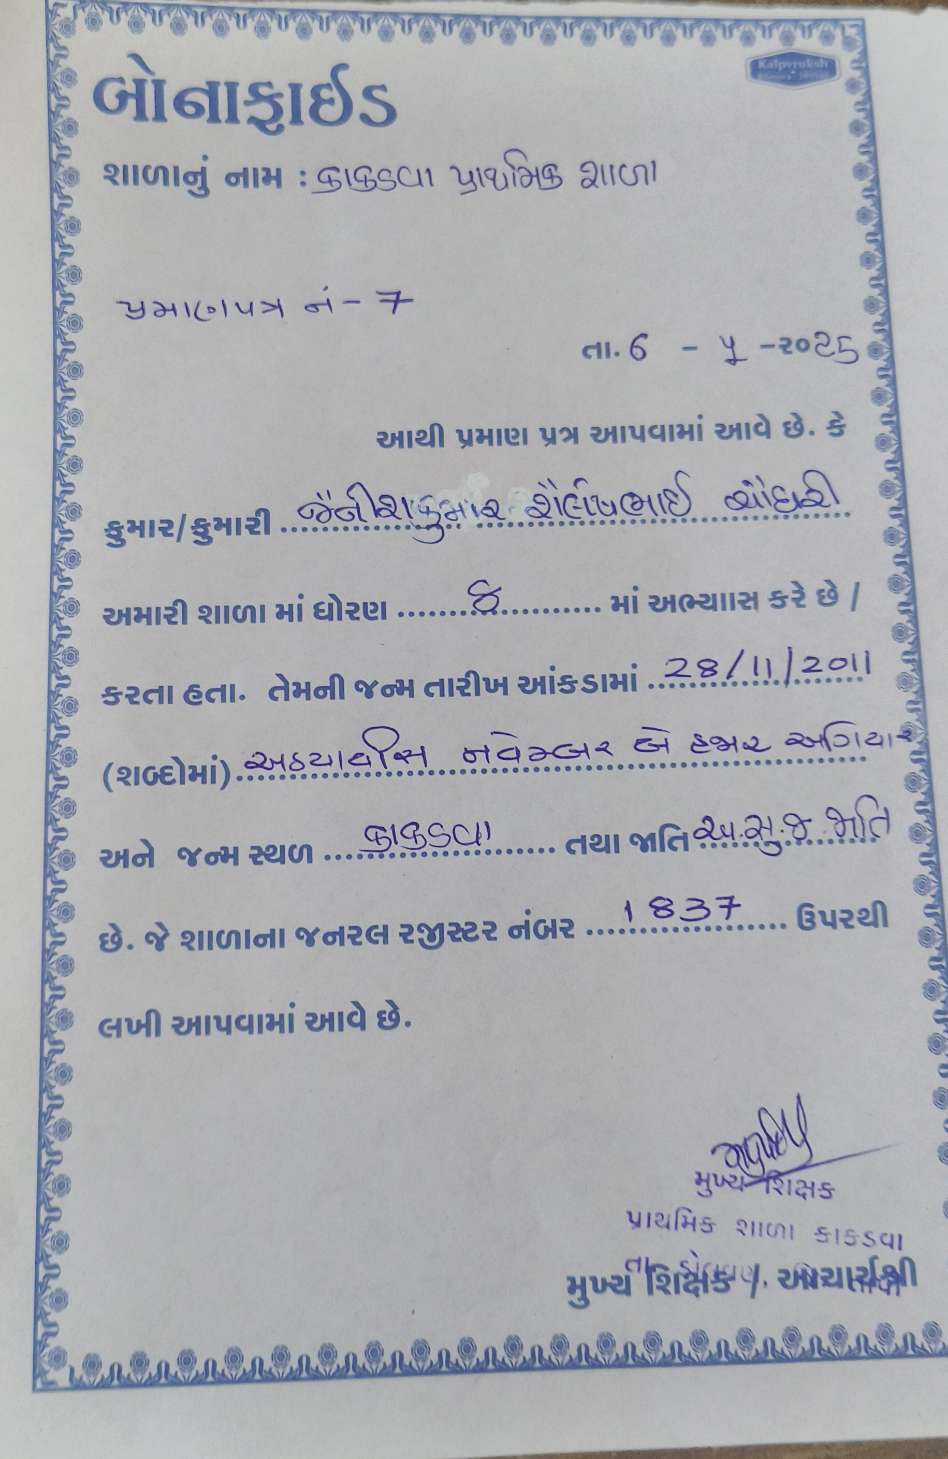 Kalpvruksh
બોનાફાઈડ
શાળાનું નામ : કાકડવા પ્રાથમિક શાળા
પ્રમાણપત્ર નં - 7
તા. 6 - ૫ -૨૦25
આથી પ્રમાણ પત્ર આપવામાં આવે છે. કે
કુમાર/કુમારી જૈનીશકુમાર શૈલેષભાઈ ચૌધરી
અમારી શાળા માં ધોરણ ૪ માં અભ્યાસ કરે છે /
કરતા હતા. તેમની જન્મ તારીખ આંકડામાં 28/11/2011
(શબ્દોમાં) અઠયાવીસ નવેમ્બર બે હજાર અગિયાર
અને જન્મ સ્થળ કાકડવા તથા જાતિ અ.સુ.જ.જાતિ
છે. જે શાળાના જનરલ રજીસ્ટર નંબર 1837 ઉપરથી
લખી આપવામાં આવે છે.
મુખ્ય શિક્ષક
પ્રાથમિક શાળા કાકડવા
મુખ્ય શિક્ષક / આચાર્યશ્રી